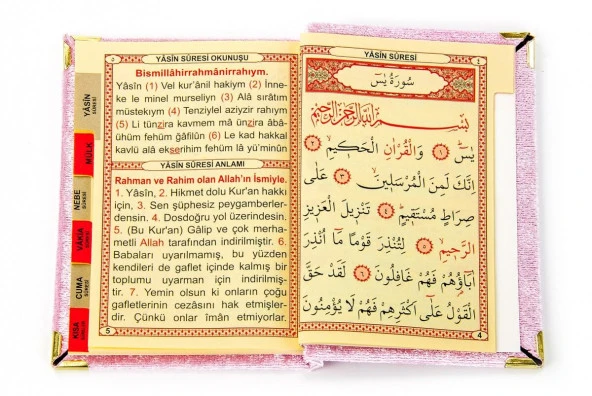 YÂSİN SÛRESİ OKUNUŞU
Bismillâhirrahmânirrahıym.
Yâsîn (1) Vel kur'ânil hakiym (2) İnne-
ke le minel murseliyn (3) Alâ sırâtım
müstekıym (4) Tenziylel aziyzir rahıym
(5) Li tünzira kavmem mâ ünzira âbâ-
ühüm fehüm ğâfilûn (6) Le kad hakkal
kavlü alâ ekserihim fehüm lâ yü'minûn
YÂSİN SÛRESİ ANLAMI
Rahman ve Rahim olan Allah'ın İsmiyle.
1. Yâsîn, 2. Hikmet dolu Kur'an hakkı
için, 3. Sen şüphesiz peygamberler-
densin. 4. Dosdoğru yol üzerindesin.
5. (Bu Kur'an) Gâlip ve çok merha-
metli Allah tarafından indirilmiştir. 6.
Babaları uyarılmamış, bu yüzden
kendileri de gaflet içinde kalmış bir
toplumu uyarman için indirilmiş-
tir. 7. Yemin olsun ki onların çoğu
gafletlerinin cezasını hak etmişler-
dir. Çünkü onlar îman etmiyorlar.
5
YÂSİN
SÛRESİ
MÜLK
NEBE
SÛRESİ
VÂKIA
SÛRESİ
CUMA
SÛRESİ
KISA
YÂSİN SÛRESİ
1
سُورَةُ يٰسٓ
بِسْمِ اللّٰهِ الرَّحْمٰنِ الرَّحِيمِ
يٰسٓ ﴿١﴾ وَالْقُرْاٰنِ الْحَكِيمِ ﴿٢﴾
اِنَّكَ لَمِنَ الْمُرْسَلِينَ ﴿٣﴾ عَلٰى
صِرَاطٍ مُسْتَقِيمٍ ﴿٤﴾ تَنْزِيلَ الْعَزِيزِ
الرَّحِيمِ ﴿٥﴾ لِتُنْذِرَ قَوْمًا مَٓا اُنْذِرَ
اٰبَٓاؤُهُمْ فَهُمْ غَافِلُونَ ﴿٦﴾ لَقَدْ حَقَّ
الْقَوْلُ عَلٰٓى اَكْثَرِهِمْ فَهُمْ لَا يُؤْمِنُونَ
4